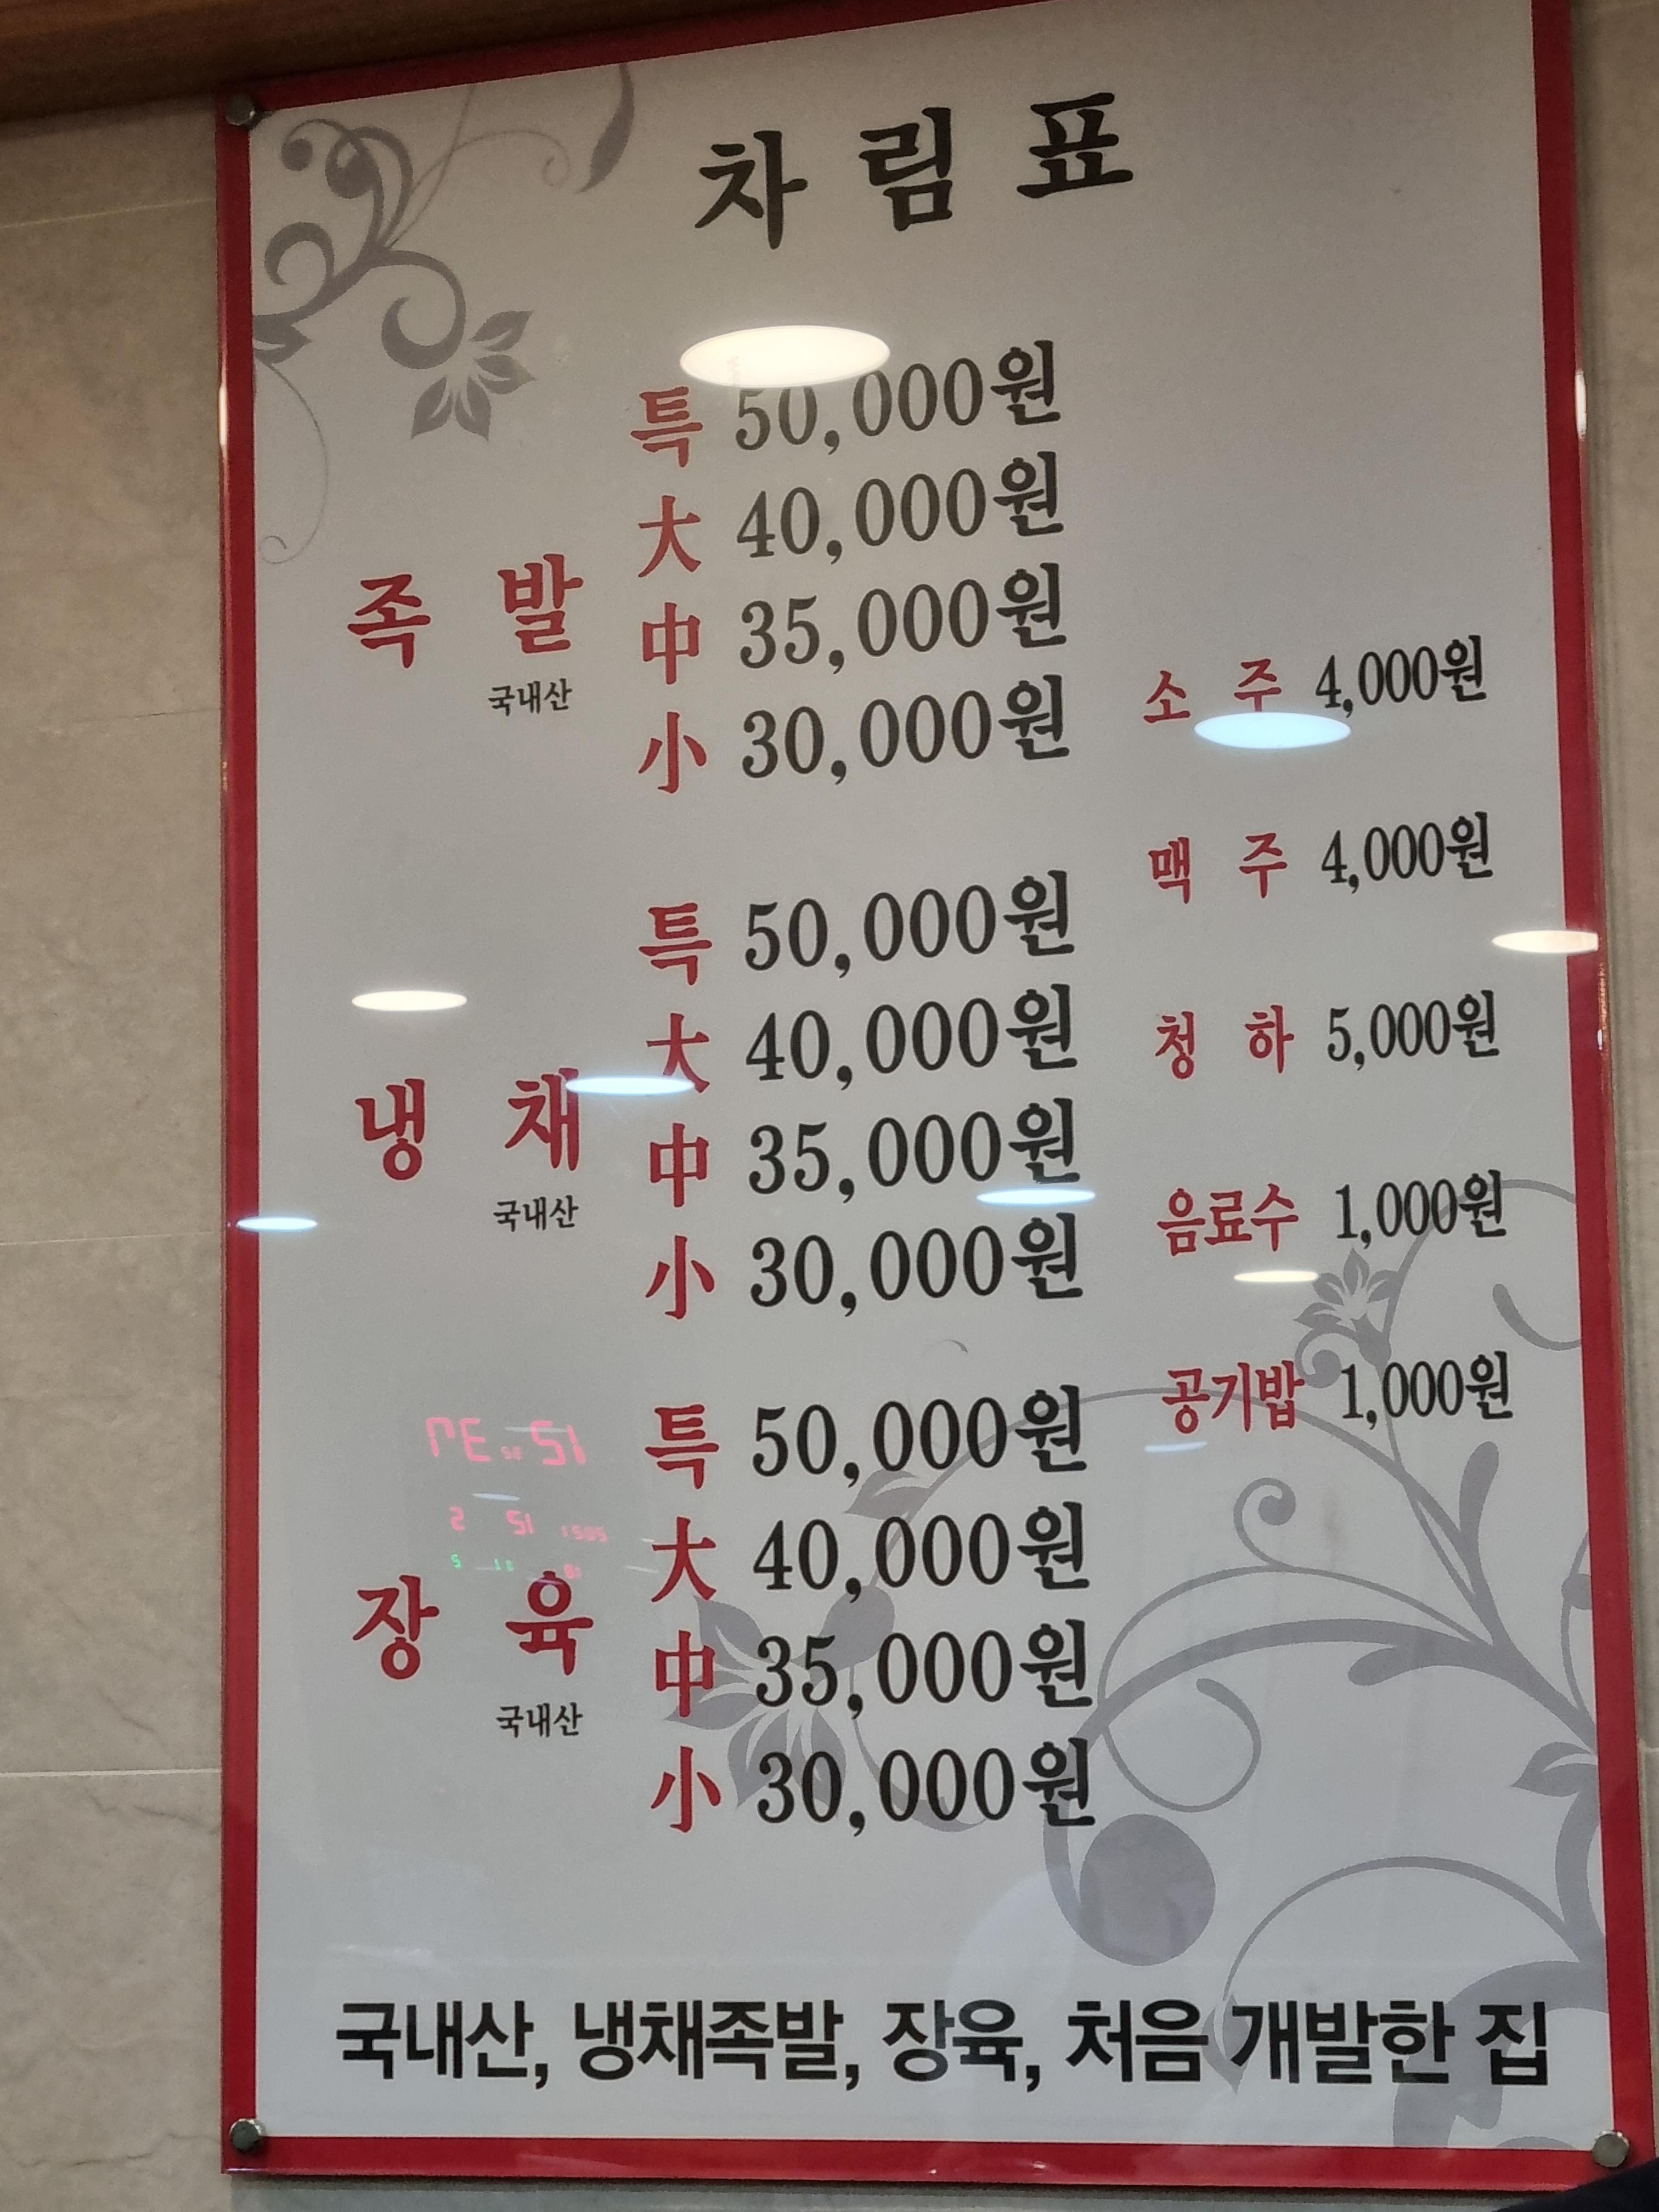 차림표
족발
국내산
특 50,000원
大 40,000원
中 35,000원
小 30,000원
냉채
국내산
특 50,000원
大 40,000원
中 35,000원
小 30,000원
장육
국내산
특 50,000원
大 40,000원
中 35,000원
小 30,000원
소주 4,000원
맥주 4,000원
청하 5,000원
음료수 1,000원
공기밥 1,000원
국내산, 냉채족발, 장육, 처음 개발한 집